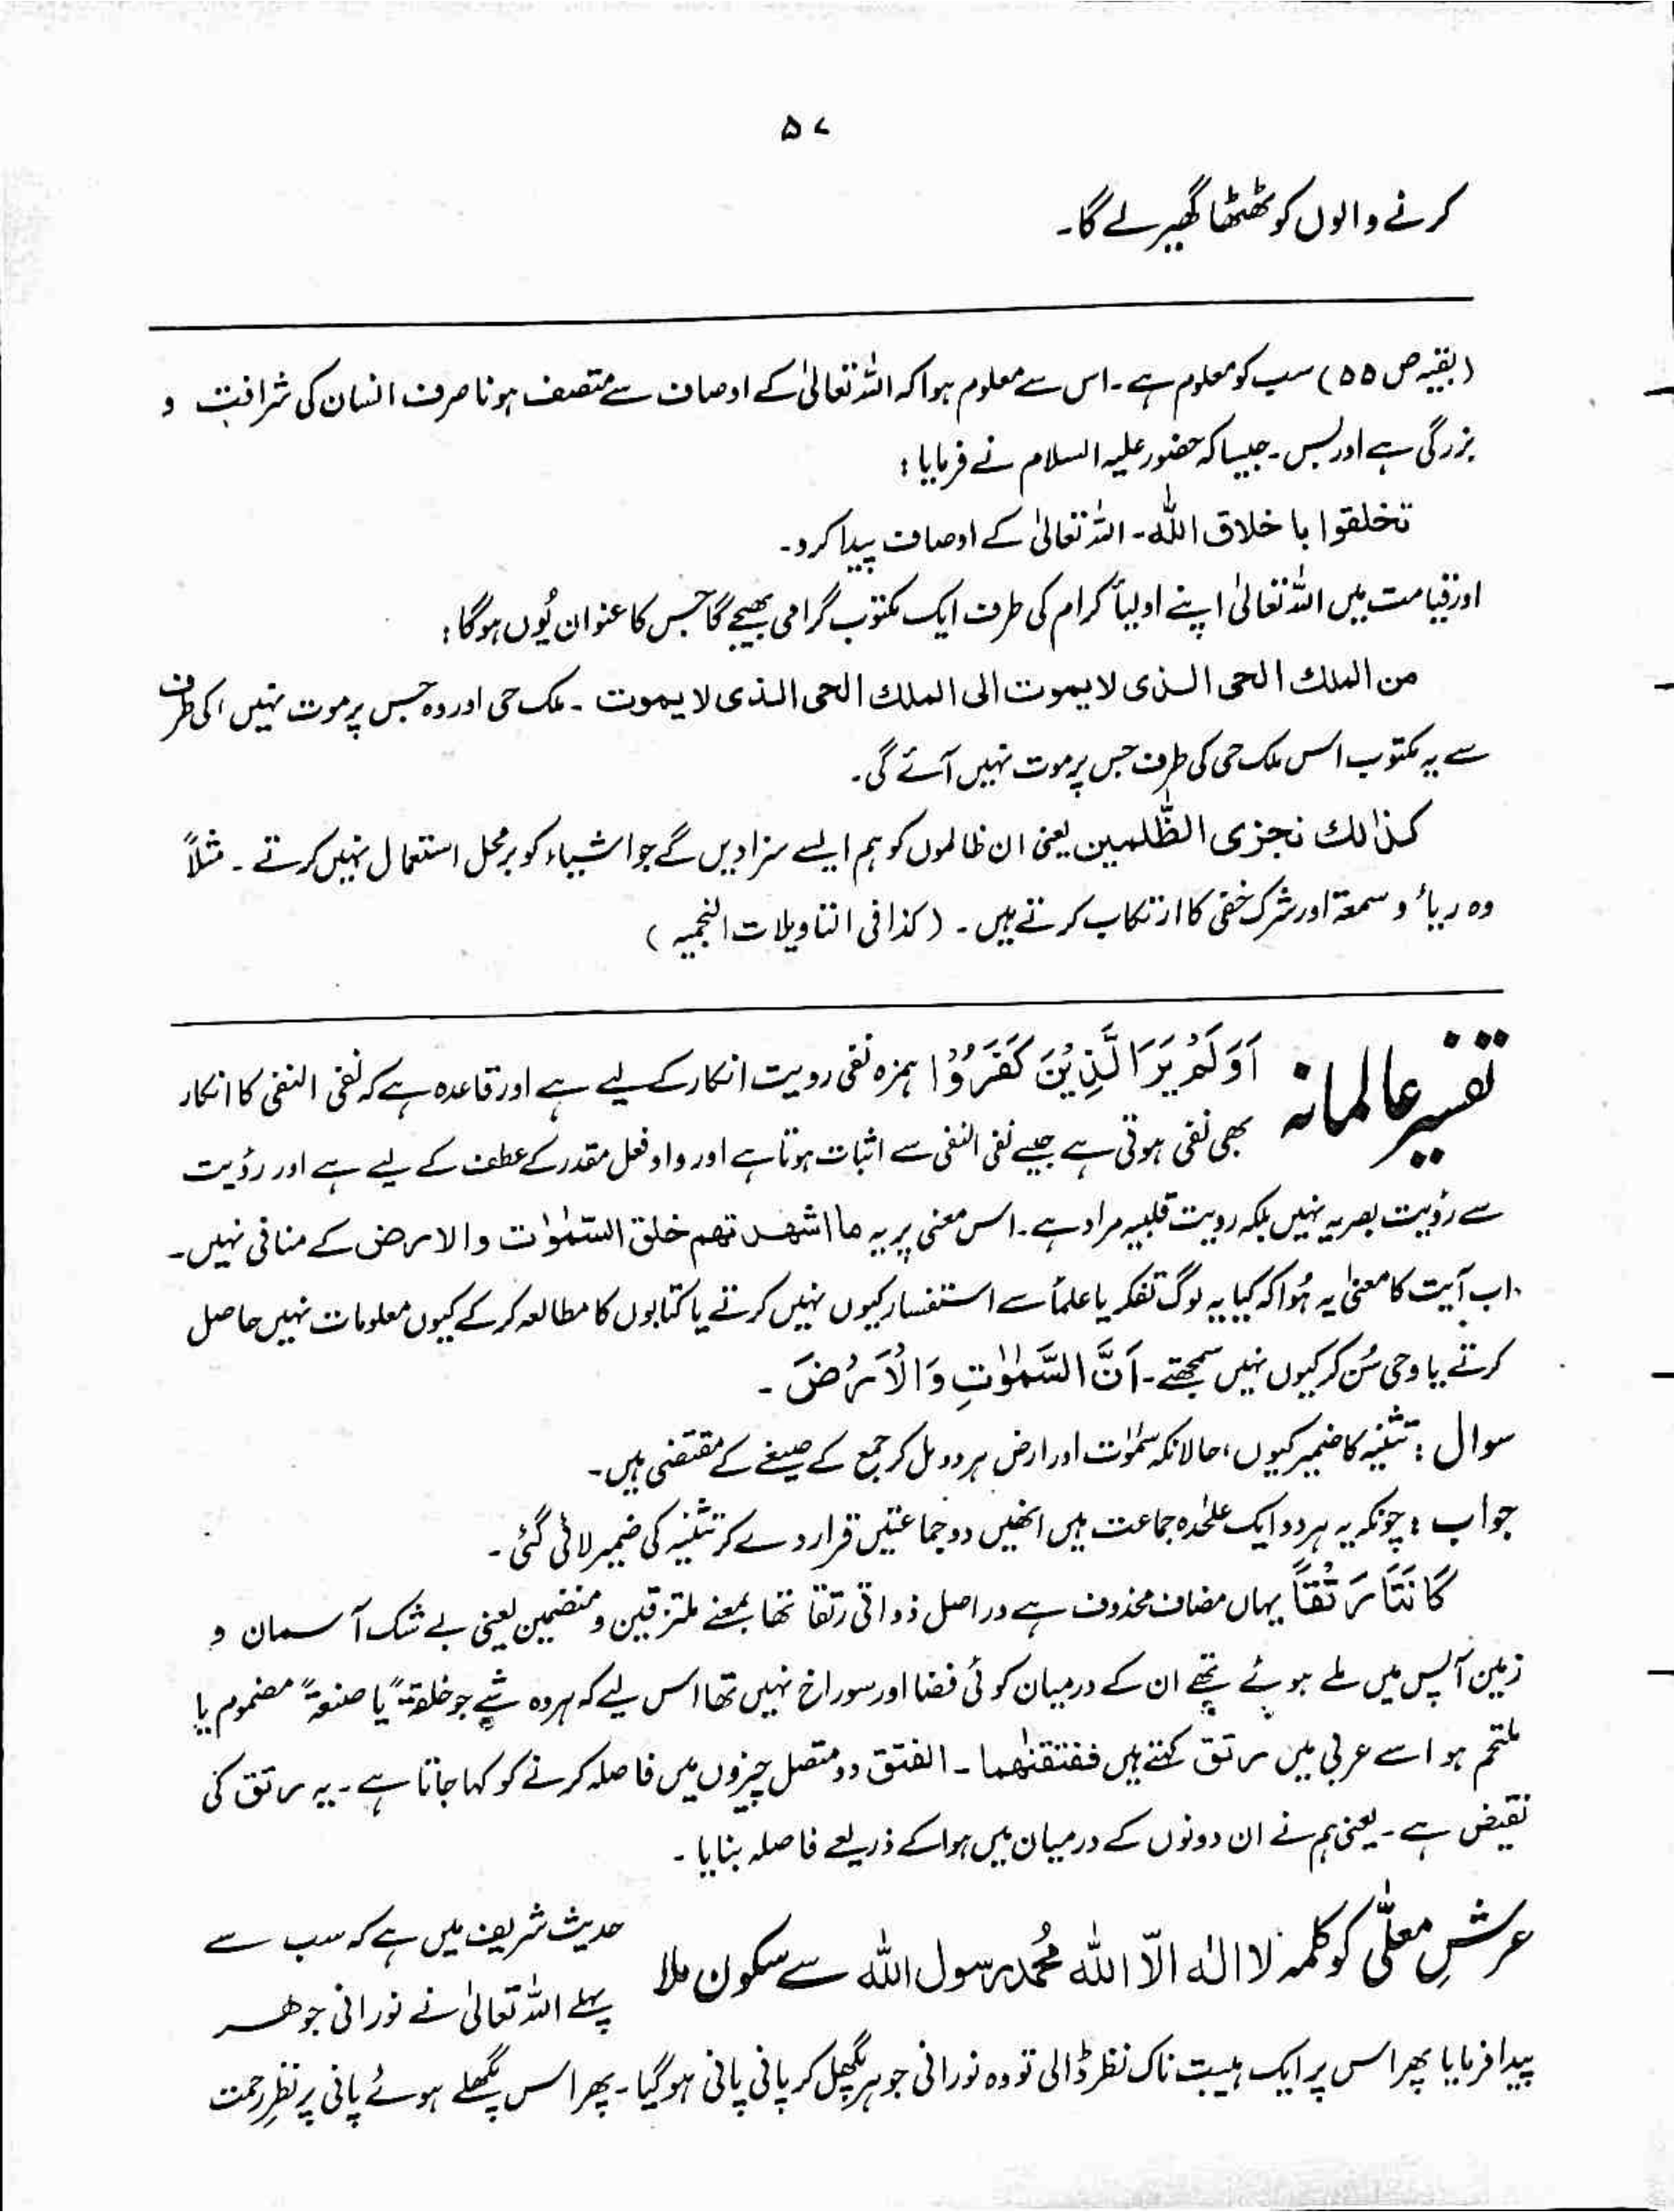 ۵۷
کرنے والوں کو ٹھٹھا گھیر لے گا۔
(بقیہ ص ۵۵) سب کو معلوم ہے۔ اس سے معلوم ہوا کہ اللہ تعالیٰ کے اوصاف سے متصف ہونا صرف انسان کی شرافت و
بزرگی ہے اور بس۔ جیسا کہ حضور علیہ السلام نے فرمایا :
تخلقوا باخلاق اللّٰہ۔ اللہ تعالیٰ کے اوصاف پیدا کرو۔
اور قیامت میں اللہ تعالیٰ اپنے اولیأ کرام کی طرف ایک مکتوب گرامی بھیجے گا جس کا عنوان یُوں ہوگا :
من الملك الحی الذی لا یموت الی الملك الحی الذی لا یموت ۔ ملک حی اور وہ جس پر موت نہیں ، کی طرف
سے یہ مکتوب اس ملک حی کی طرف جس پر موت نہیں آئے گی۔
کذٰلك نجزی الظّٰلمین یعنی ان ظالموں کو ہم ایسے سزا دیں گے جو اشیاء کو برمحل استعمال نہیں کرتے ۔ مثلاً
وہ ریأ و سمعۃ اور شرک خفی کا ارتکاب کرتے ہیں ۔ (کذا فی التاویلات النجمیہ)
تفسیر عالمانہ اَوَلَمْ یَرَ الَّذِیْنَ کَفَرُوْا ہمزہ نفی رویت انکار کے لیے ہے اور قاعدہ ہے کہ نفی النفی کا انکار
بھی نفی ہوتی ہے جیسے نفی النفی سے اثبات ہوتا ہے اور واو فعل مقدر کے عطف کے لیے ہے اور رؤیت
سے رؤیت بصریہ نہیں بلکہ رویت قلبیہ مراد ہے۔ اس معنی پر یہ ما اشھدتھم خلق السّمٰوٰت والارض کے منافی نہیں۔
اب آیت کا معنیٰ یہ ہُوا کہ کیا یہ لوگ تفکر یا علمأ سے استفسار کیوں نہیں کرتے یا کتابوں کا مطالعہ کر کے کیوں معلومات نہیں حاصل
کرتے یا وحی سُن کر کیوں نہیں سمجھتے۔ اَنَّ السَّمٰوٰتِ وَالْاَرْضَ ۔
سوال : تثنیہ کا ضمیر کیوں ، حالانکہ سمٰوٰت اور ارض ہر دو مل کر جمع کے صیغے کے مقتضی ہیں۔
جواب : چونکہ یہ ہر دو ایک علٰحدہ جماعت ہیں انھیں دو جماعتیں قرار دے کر تثنیہ کی ضمیر لائی گئی ۔
کَانَتَا رَتْقاً یہاں مضاف محذوف ہے دراصل ذواتی رتقا تھا بمعنے ملتزقین و منضمین یعنی بے شک آسمان و
زمین آپس میں ملے ہوئے تھے ان کے درمیان کوئی فضا اور سوراخ نہیں تھا اس لیے کہ ہر وہ شے جو خلقۃً یا صنعۃً مضموم یا
ملتحم ہو اسے عربی میں رتق کہتے ہیں ففتقنٰھما ۔ الفتق دو متصل چیزوں میں فاصلہ کرنے کو کہا جاتا ہے ۔ یہ رتق کی
نقیض ہے ۔ یعنی ہم نے ان دونوں کے درمیان میں ہوا کے ذریعے فاصلہ بنایا ۔
عرشِ معلّٰی کو کلمہ لا الٰہ الّا اللّٰہ مُحمّد رسول اللّٰہ سے سکون ملا
حدیث شریف میں ہے کہ سب سے
پہلے اللہ تعالیٰ نے نورانی جوھر
پیدا فرمایا پھر اس پر ایک ہیبت ناک نظر ڈالی تو وہ نورانی جوہر پگھل کر پانی پانی ہوگیا۔ پھر اس پگھلے ہوئے پانی پر نظرِ رحمت